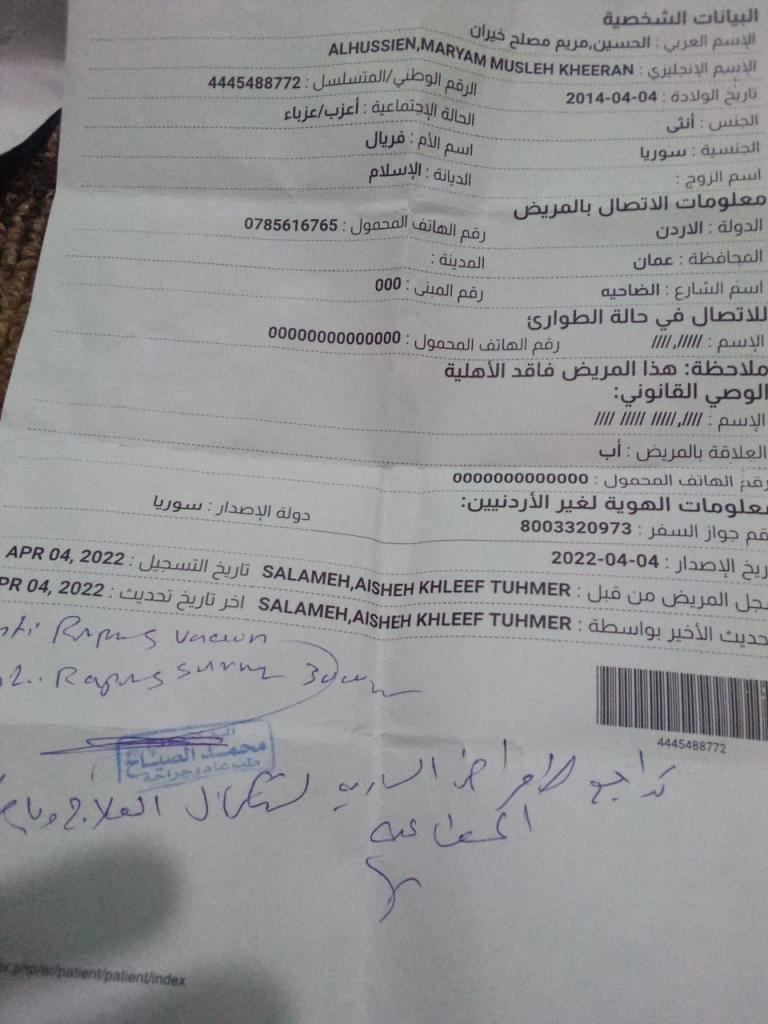 البيانات الشخصية
الإسم العربي : الحسين,مريم مصلح خيران
الإسم الإنجليزي : ALHUSSIEN,MARYAM MUSLEH KHEERAN
تاريخ الولادة : 2014-04-04 الرقم الوطني/المتسلسل : 4445488772
الجنس : أنثى الحالة الإجتماعية : أعزب/عزباء
الجنسية : سوريا اسم الأم : فريال
اسم الزوج : الديانة : الإسلام
معلومات الاتصال بالمريض
الدولة : الاردن رقم الهاتف المحمول : 0785616765
المحافظة : عمان المدينة :
اسم الشارع : الضاحيه رقم المبنى : 000
للاتصال في حالة الطوارئ
الإسم : /////,//// رقم الهاتف المحمول : 00000000000000
ملاحظة: هذا المريض فاقد الأهلية
الوصي القانوني:
الإسم : ////,///// ///// ////
العلاقة بالمريض : أب
رقم الهاتف المحمول : 0000000000000
معلومات الهوية لغير الأردنيين:
قم جواز السفر : 8003320973 دولة الإصدار : سوريا
ريخ الإصدار : 2022-04-04
جل المريض من قبل : SALAMEH,AISHEH KHLEEF TUHMER تاريخ التسجيل : APR 04, 2022
حديث الأخير بواسطة : SALAMEH,AISHEH KHLEEF TUHMER اخر تاريخ تحديث : PR 04, 2022
4445488772
محمد الصباغ
طب عام وجراحة
تراجع الأمراض السارية لاستكمال العلاج
patient/patient/index